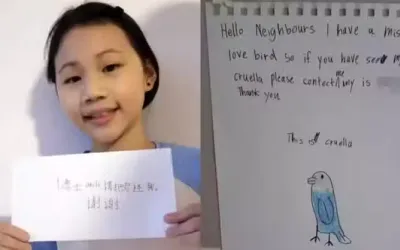 请把它还我
谢谢
Hello Neighbours I have a mis
love bird so if you have seen m
cruella please contact me my is
Thank you
This is cruella